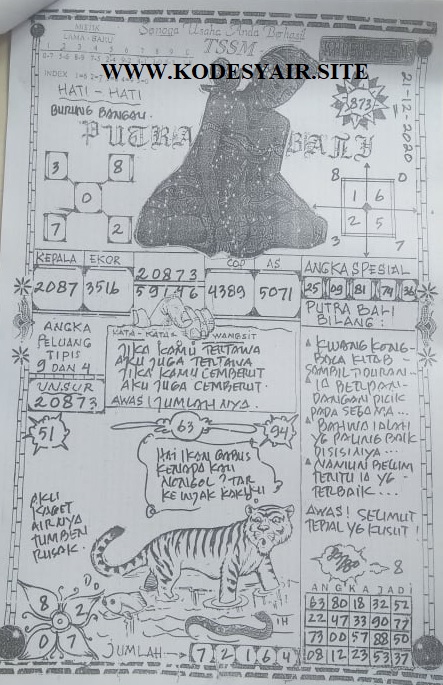 Semoga Usaha Anda Berhasil
TSSM
MISTIK
LAMA - BARU
INDEX
WWW.KODESYAIR.SITE
HATI - HATI
BURUNG BANGAU.
PUTRA BALI
873
21-12-2020
3 8
0
7 2
8 0
1 6
2 5
3 7
KEPALA EKOR
2087 3516
20873
59146
COP AS
4389 5071
ANGKA SPESIAL
25 09 81 74 36
PUTRA BALI
BILANG :
ANGKA
PELUANG
TIPIS
9 DAN 4
UNSUR
20873
KATA - KATA WANGSIT
JIKA KAMU TERTAWA
AKU JUGA TERTAWA
JIKA KAMU CEMBERUT
AKU JUGA CEMBERUT.
AWAS! JUMLAHNYA.
KWANG KONG
BACA KITAB
SAMBIL
PADA SEGAMA...
BAHWA IALAH
YG PALING BAIK
DISISINYA...
NAMUN BELUM
TENTU IA YG
TERBAIK...
AWAS! SELIMUT
TEBAL YG KUSUT!
51
63
94
HAI IKAN GABUS
KENAPA KAU
NONGOL? TAR
KEINJAK KAKIKU
AKU
KAGET
AIRNYA
TUMBEN
RUSAK.
8
8 2
0 7
JUMLAH 7 2 1 6 4
ANGKA JADI
63 80 18 32 52
22 47 33 90 77
73 00 57 88 50
08 12 23 53 37